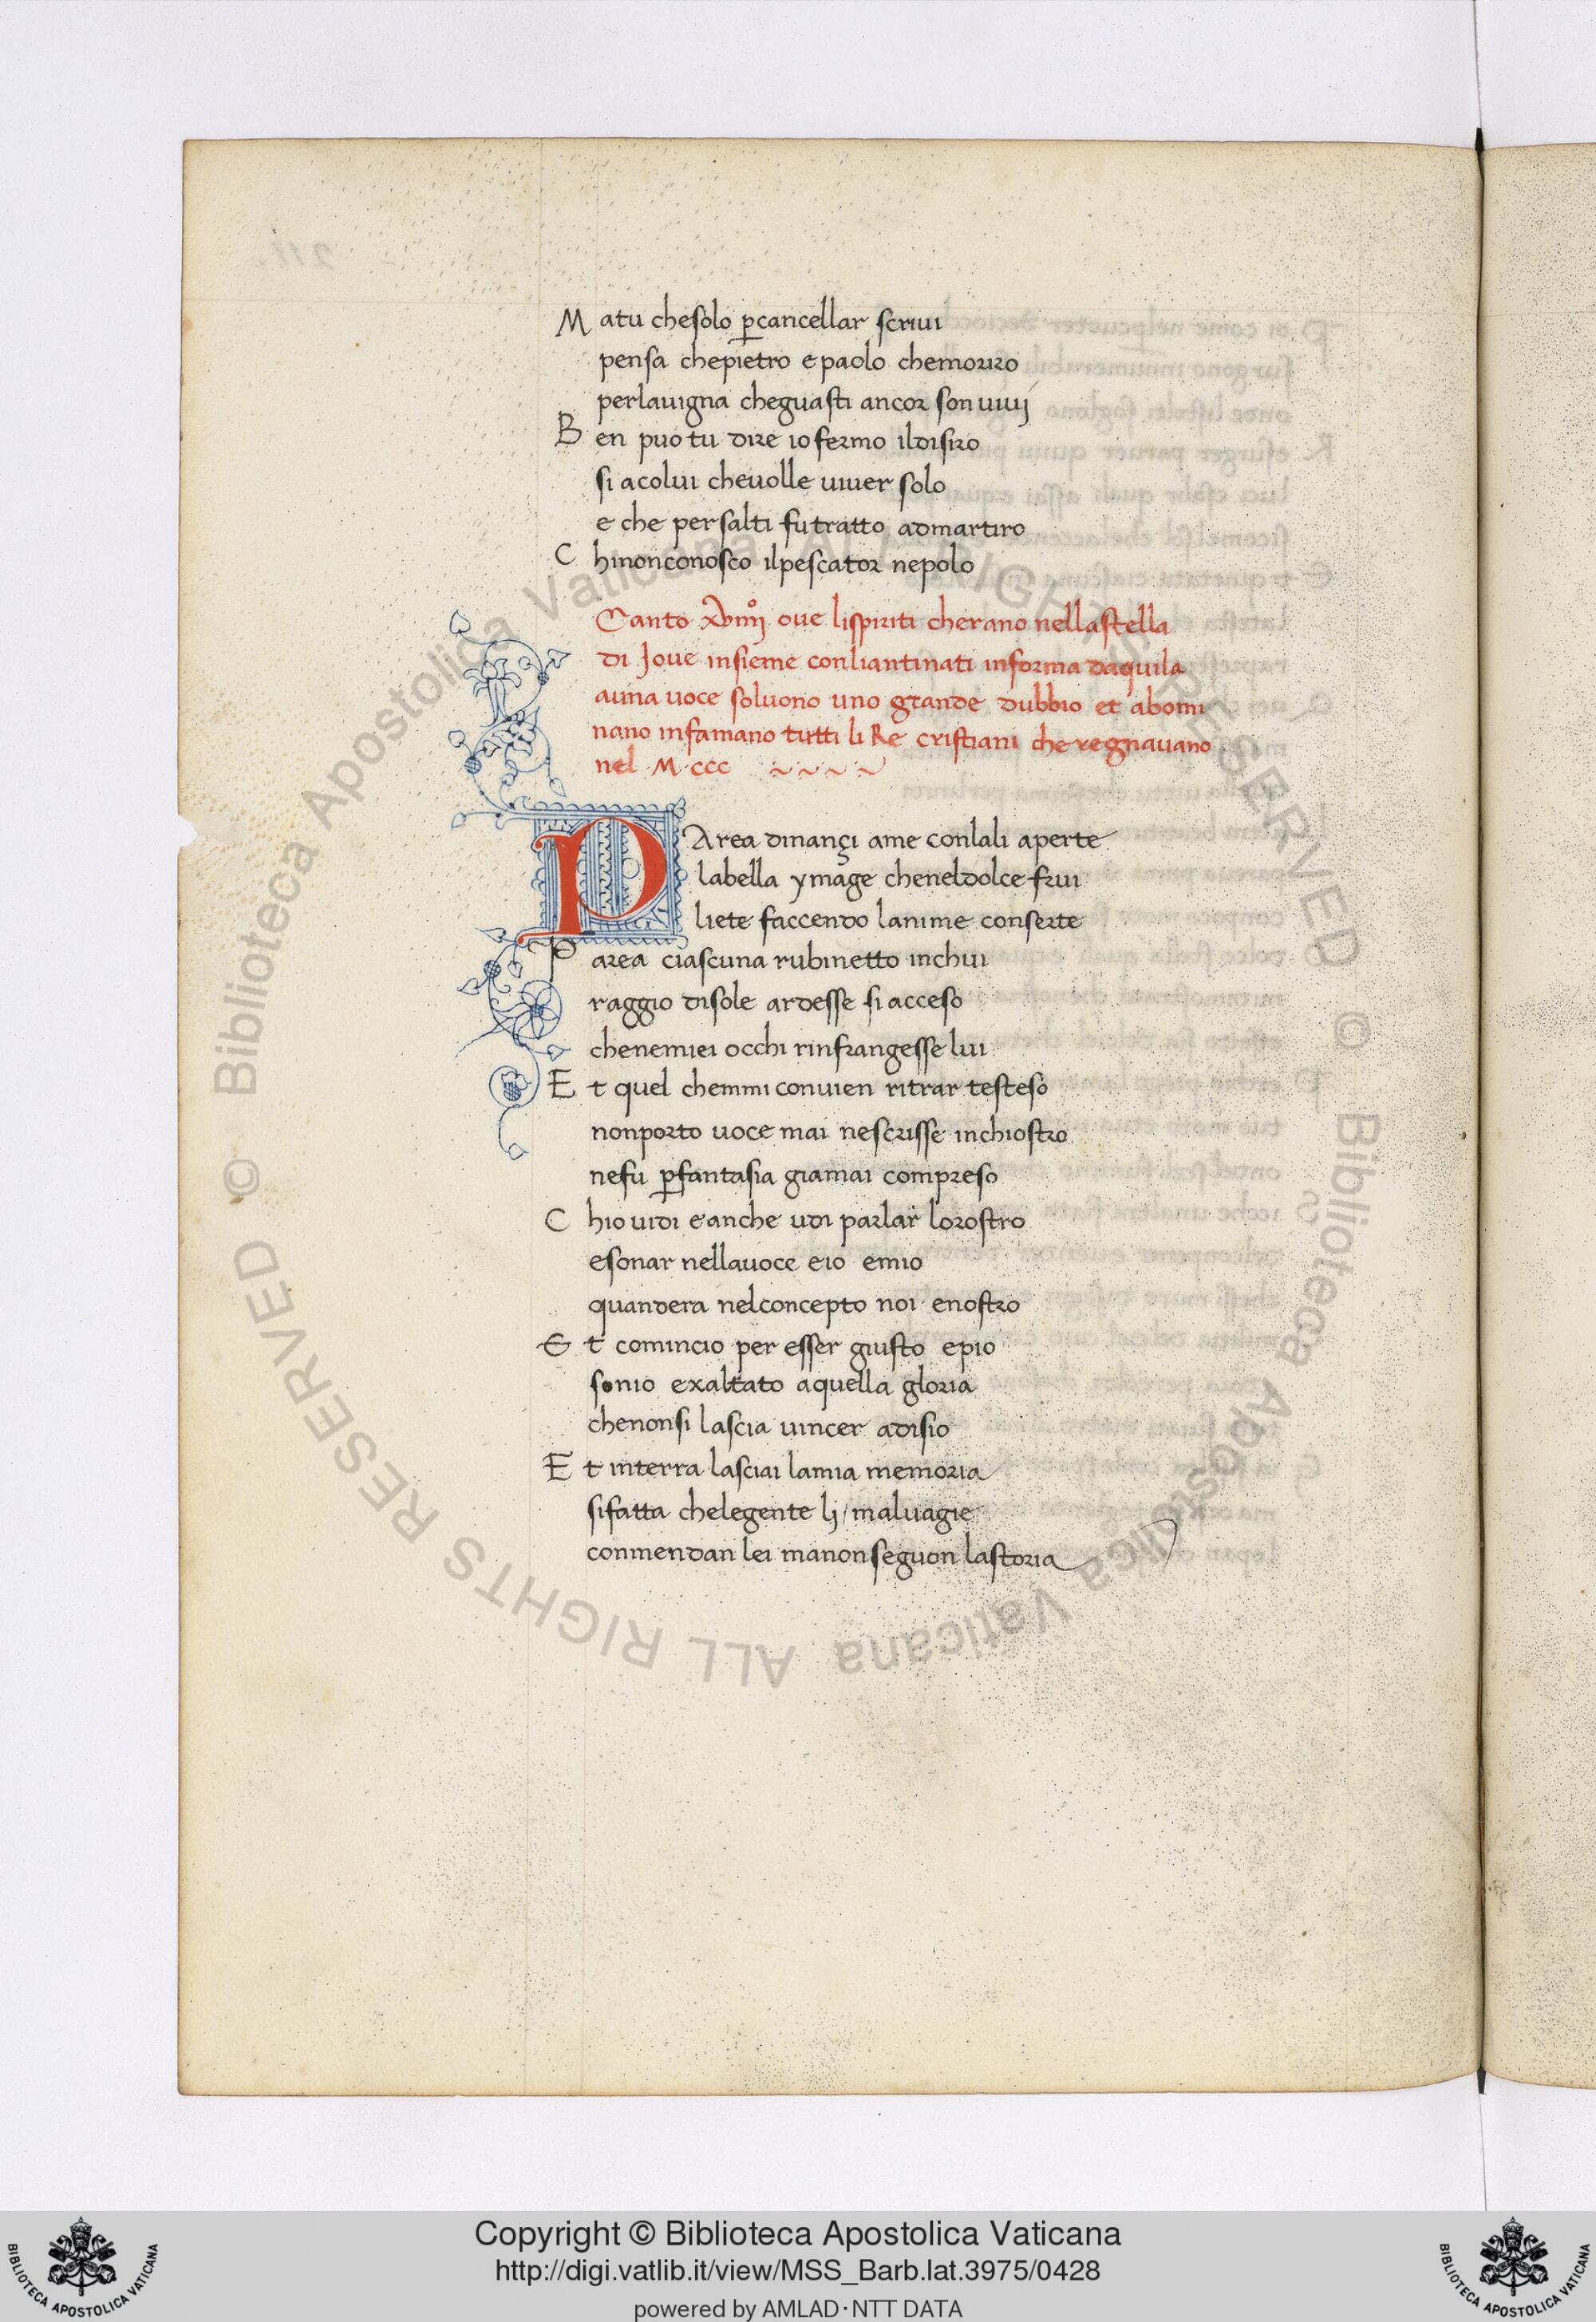 M atu cheſolo ꝑcancellar ſcriui
penſa chepietro epaolo chemoriro
perlauigna cheguaſti ancor ſon uiuj
B en puo tu dire iofermo ildiſiro
ſi acolui cheuolle uiuer ſolo
e che perſalti futratto admartiro
C hinonconoſco ilpeſcator nepolo
Canto xviiijº oue liſpiriti cherano nellaſtella
di Joue inſieme conliantinati informa daquila
auna uoce ſoluono uno grande dubbio et abomi
nano infamano tutti li Re criſtiani che regnauano
nel M·ccc
P Area dinançi ame conlali aperte
labella ymage cheneldolce frui
liete faccendo lanime conſerte
P area ciaſcuna rubinetto inchui
raggio diſole ardeſſe ſi acceſo
chenemiei occhi rinfrangeſſe lui
E t quel chemmi conuien ritrar teſteſo
nonporto uoce mai neſcriſſe inchioſtro
nefu ꝑfantaſia giamai compreſo
C hio uidi eanche udi parlar loroſtro
eſonar nellauoce eio emio
quandera nelconcepto noi enoſtro
E t comincio per eſſer giuſto epio
ſonio exaltato aquella gloria
chenonſi laſcia uincer adiſio
E t interra laſciai lamia memoria
ſifatta chelegente lj maluagie
conmendan lei manonſeguon laſtoria
© Biblioteca Apostolica Vaticana ALL RIGHTS RESERVED © Biblioteca Apostolica Vaticana ALL RIGHTS RESERVED
Copyright © Biblioteca Apostolica Vaticana
http://digi.vatlib.it/view/MSS_Barb.lat.3975/0428
powered by AMLAD·NTT DATA
BIBLIOTECA APOSTOLICA VATICANA
BIBLIOTECA APOSTOLICA VATICANA